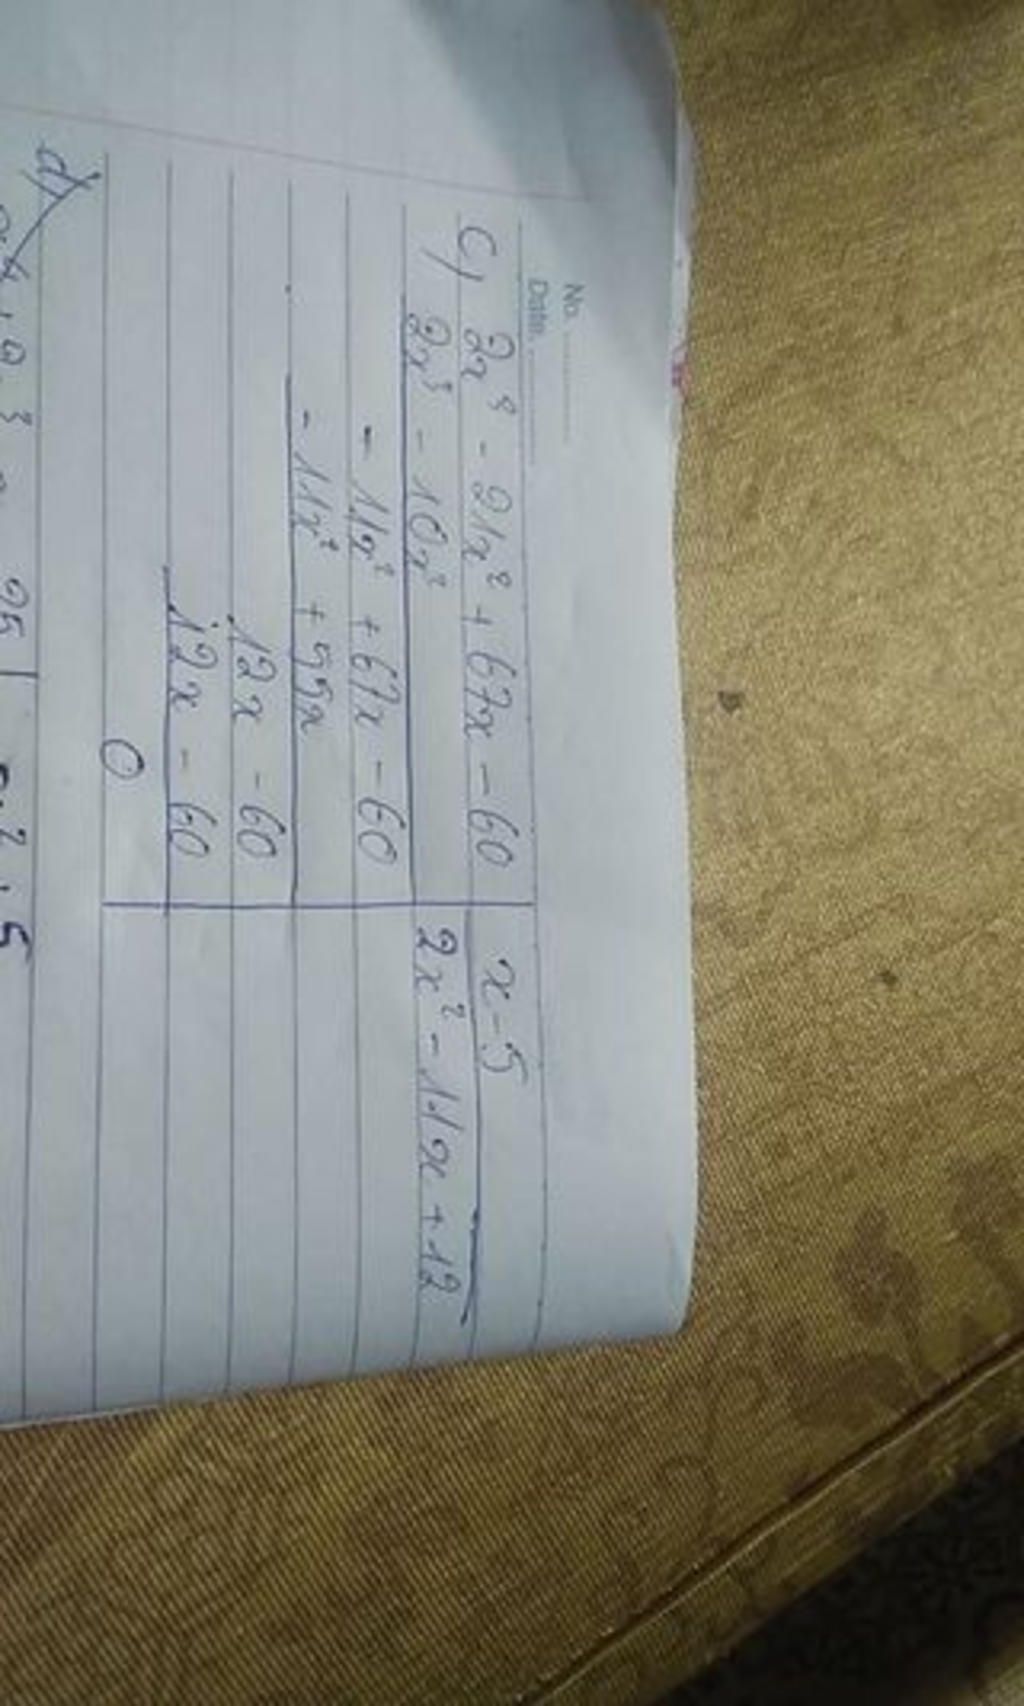 No.
Date
c, 2x³ - 21x² + 67x - 60 | x - 5
2x³ - 10x² | 2x² - 11x + 12
- 11x² + 67x - 60
- 11x² + 55x
12x - 60
12x - 60
0
d,